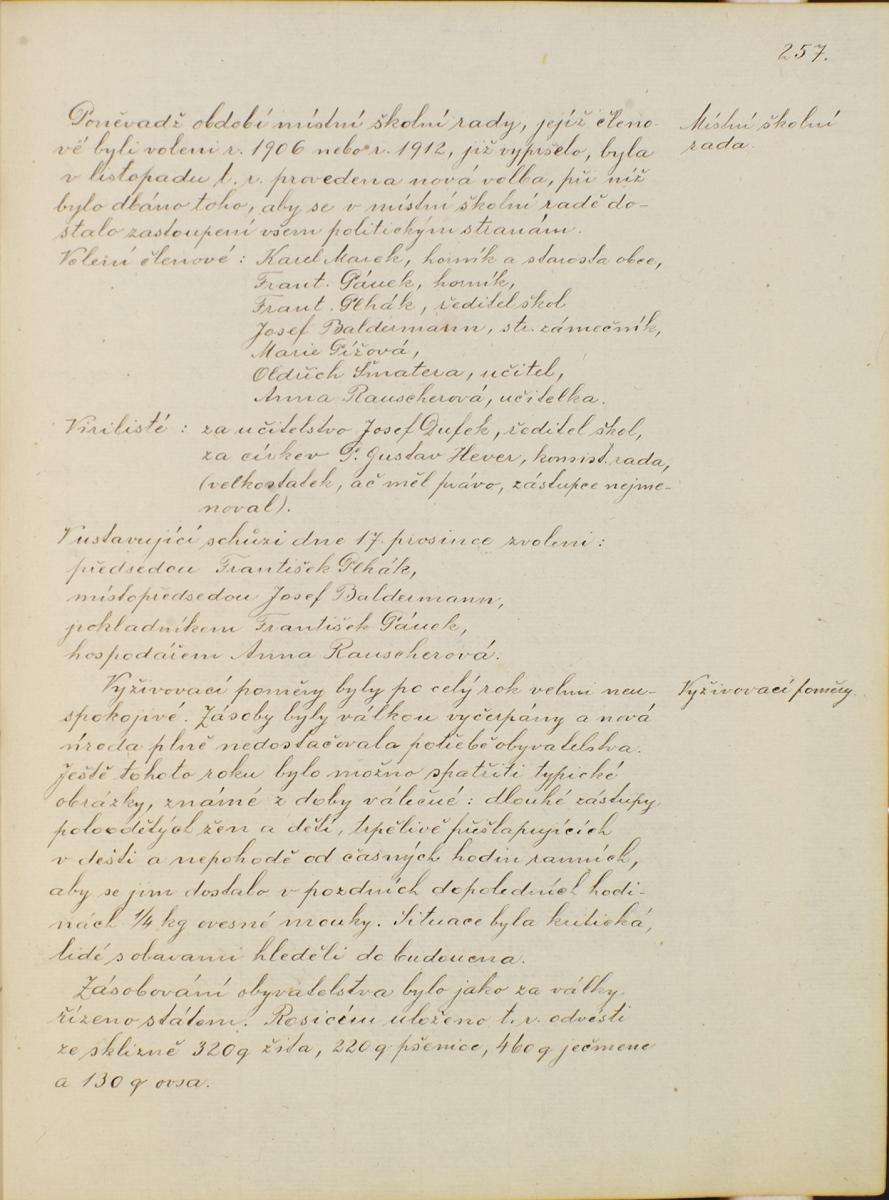 257.
Poněvadž období místní školní rady, jejíž členo-
vé byli voleni r. 1906 nebo r. 1912, již vypršelo, byla
v listopadu t. r. provedena nová volba, při níž
bylo dbáno toho, aby se v místní školní radě do-
stalo zastoupení všem politickým stranám.
Místní školní
rada.
Volení členové: Karel Marek, horník a starosta obce,
Frant. Pánek, horník,
Frant. Plhák, ředitel škol
Josef Baldermann, str. zámečník,
Marie Pížová,
Oldřich Šmatera, učitel,
Anna Rauscherová, učitelka.
Virilisté: za učitelstvo Josef Dufek, ředitel škol,
za církev P. Gustav Hever, konsist. rada,
(velkostatek, ač měl právo, zástupce nejme-
noval).
V ustavující schůzi dne 17. prosince zvoleni:
předsedou František Plhák,
místopředsedou Josef Baldermann,
pokladníkem František Pánek,
hospodářem Anna Rauscherová.
Vyživovací poměry byly po celý rok velmi neu-
spokojivé. Zásoby byly válkou vyčerpány a nová
úroda plně nedostačovala potřebě obyvatelstva.
Ještě tohoto roku bylo možno spatřiti typické
obrázky, známé z doby válečné: dlouhé zástupy
polooděných žen a dětí, trpělivě přešlapujících
v dešti a nepohodě od časných hodin ranních,
aby se jim dostalo v pozdních dopoledních hodi-
nách 1/4 kg ovesné mouky. Situace byla kritická,
lidé s obavami hleděli do budoucna.
Vyživovací poměry.
Zásobování obyvatelstva bylo jako za války
řízeno státem. Rosicím uloženo t. r. odvésti
ze sklizně 320 q žita, 220 q pšenice, 460 q ječmene
a 130 q ovsa.